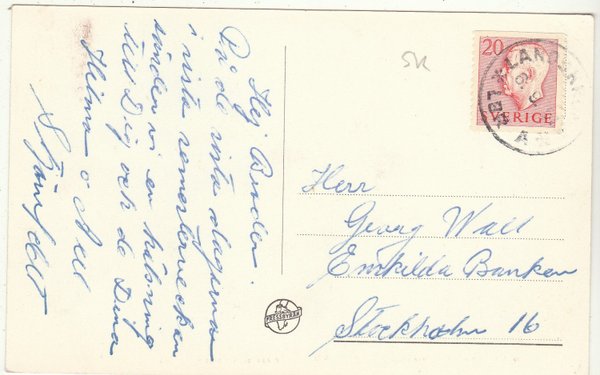 Hej Broder.
På de sista dagarna
i sista semesterveckan
sänder vi en hälsning
till Dig och de Dina
Hilma o Axel
Stjärnfeldt
SK
20
SVERIGE
Herr
Georg Wall
Enskilda Banken
Stockholm 16
PRESSBYRÅN